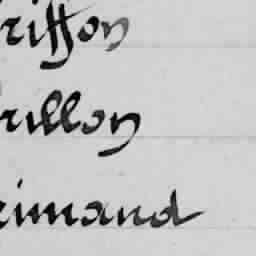 riffon
rullon
rimand